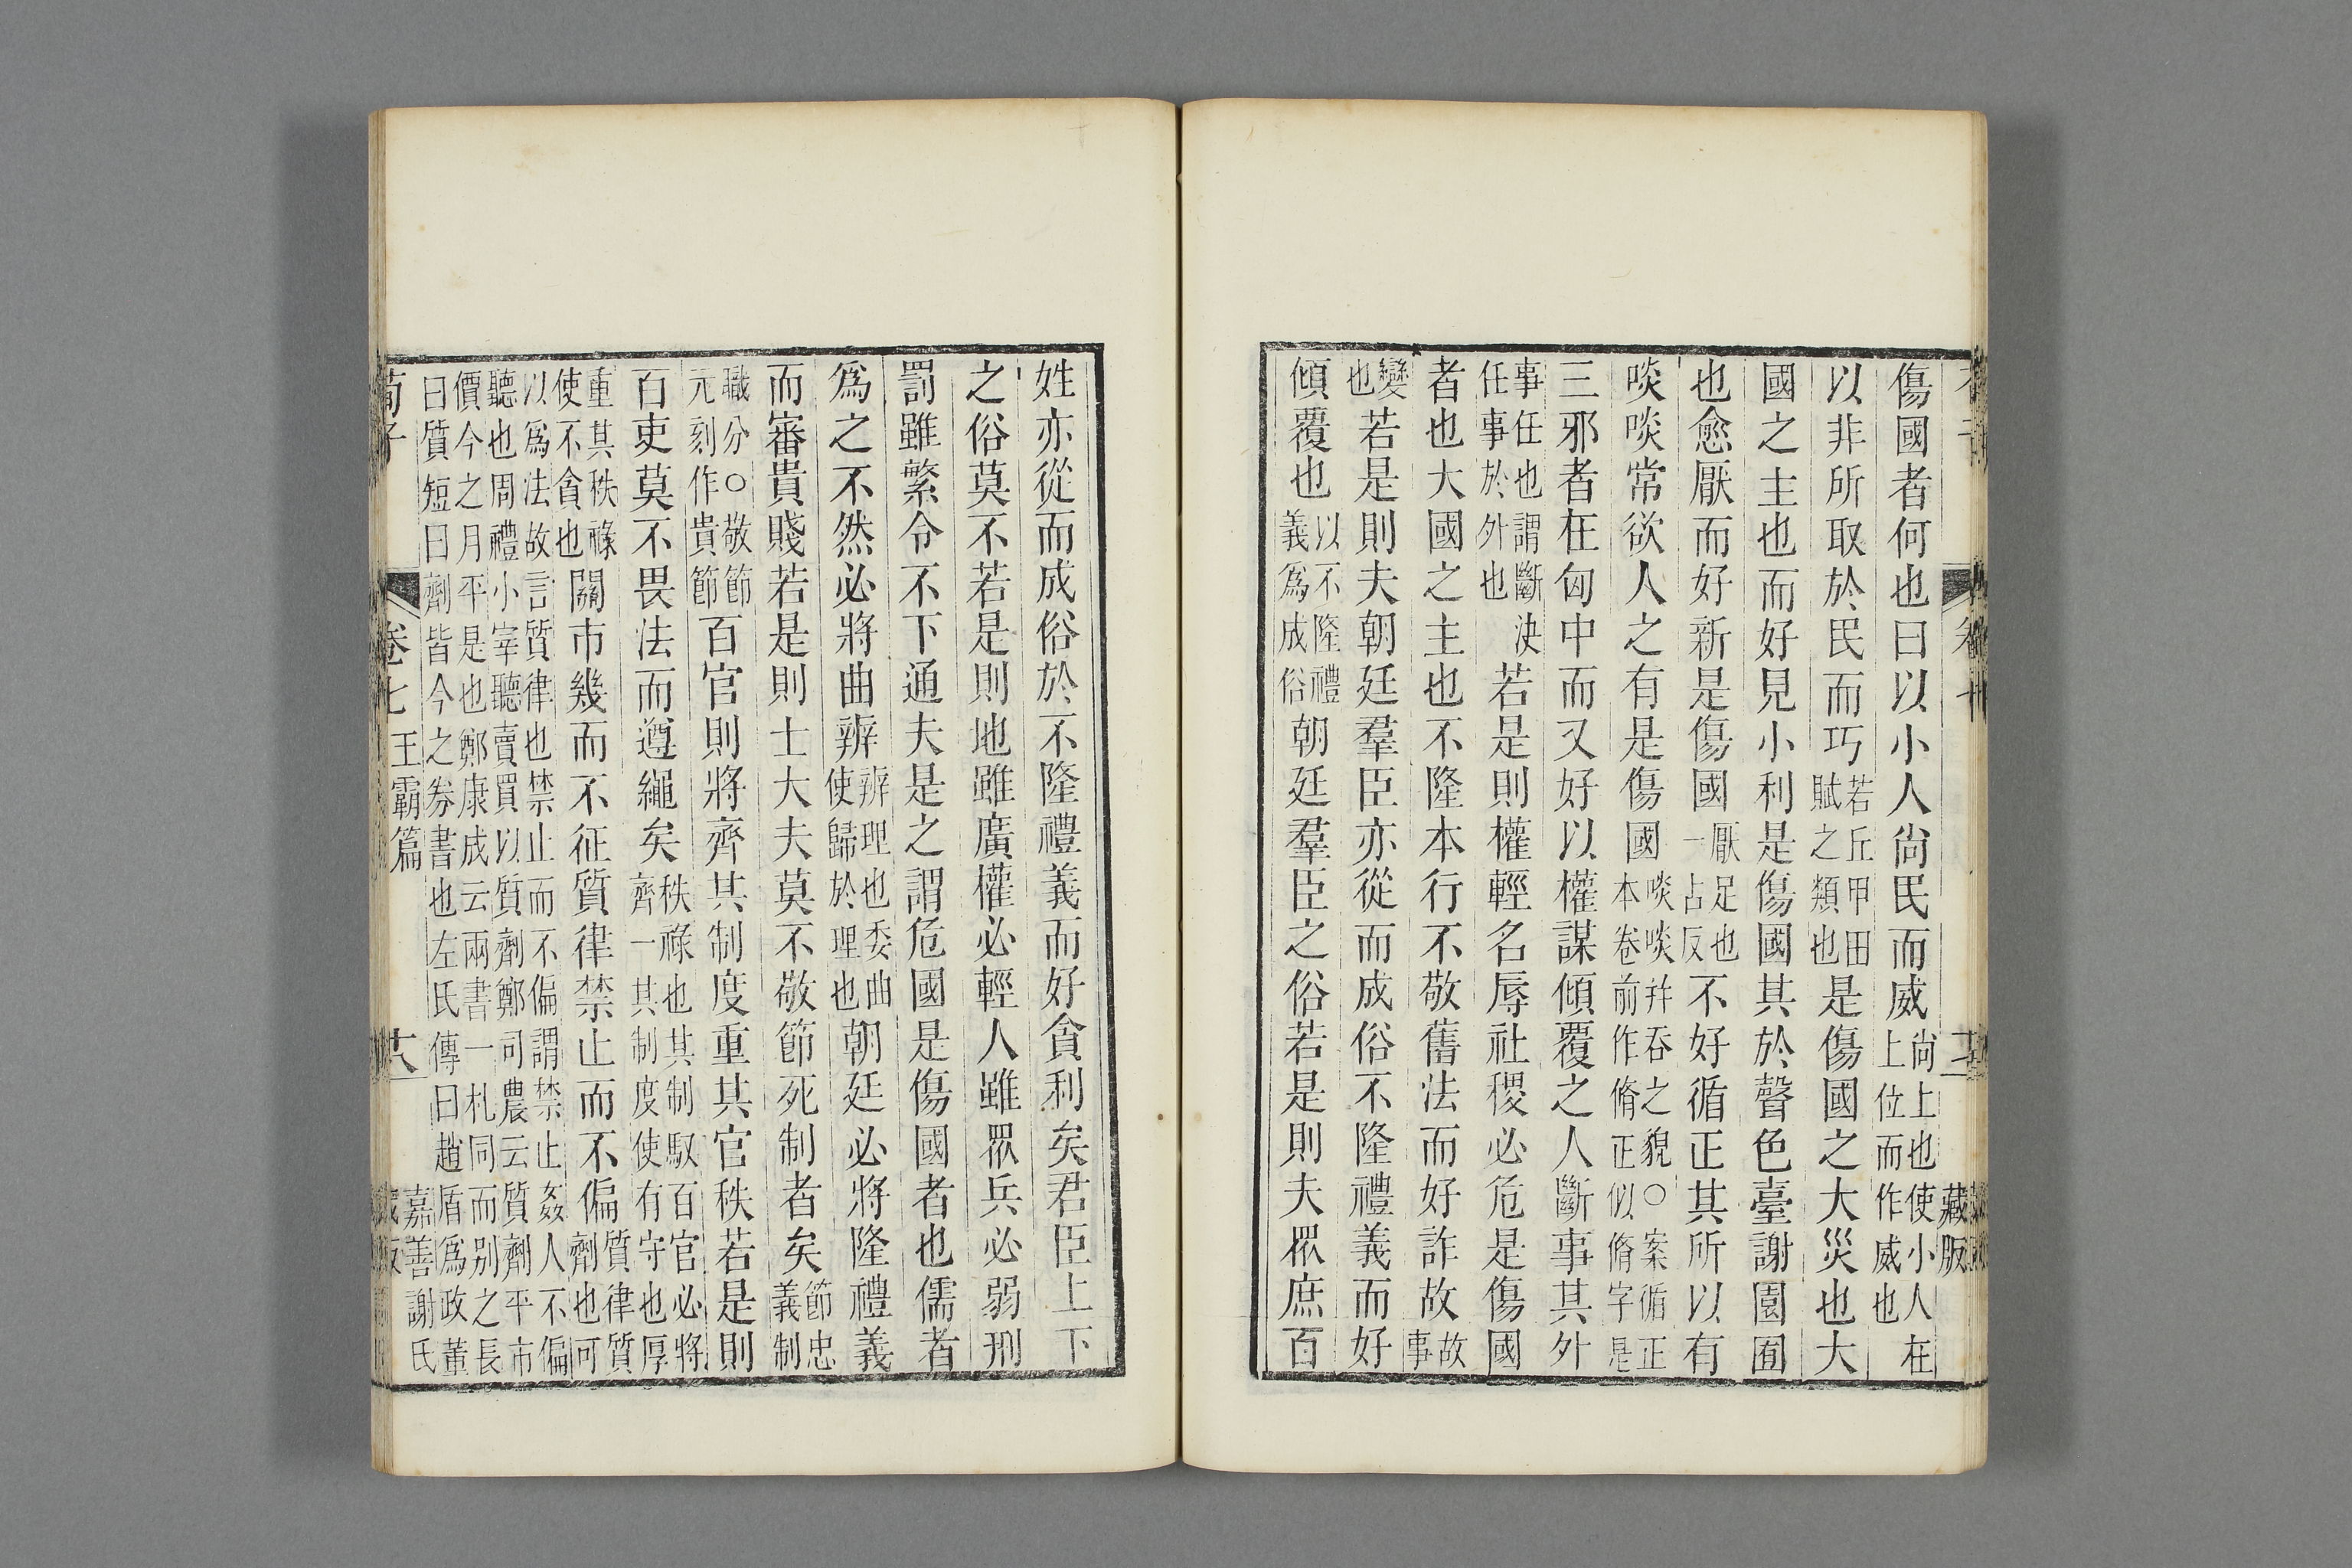 傷國者何也曰以小人尙民而威尙上也使小人在上位而作威也在
以非所取於民而巧若丘甲田賦之類也是傷國之大災也大
國之主也而好見小利是傷國其於聲色臺謝園囿
也愈厭而好新是傷國厭足也一占反不好循正其所以有
啖啖常欲人之有是傷國啖啖幷吞之貌○案循正本卷前作脩正似脩字是
三邪者在匈中而又好以權謀傾覆之人斷事其外
事任也謂斷決任事於外也若是則權輕名辱社稷必危是傷國
者也大國之主也不隆本行不敬舊法而好詐故故事
變也若是則夫朝廷羣臣亦從而成俗不隆禮義而好
傾覆也以不隆禮義爲成俗朝廷羣臣之俗若是則夫眾庶百
姓亦從而成俗於不隆禮義而好貪利矣君臣上下
之俗莫不若是則地雖廣權必輕人雖眾兵必弱刑
罰雖繁令不下通夫是之謂危國是傷國者也儒者
爲之不然必將曲辨辨理也委曲使歸於理也朝廷必將隆禮義
而審貴賤若是則士大夫莫不敬節死制者矣節忠義制
職分○敬節元刻作貴節百官則將齊其制度重其官秩若是則
百吏莫不畏法而遵繩矣秩祿也其制馭百官必將齊一其制度使有守也厚
重其秩祿使不貪也關市幾而不征質律禁止而不偏質律質劑也可
以爲法故言質律也禁止而不偏謂禁止姦人不偏聽也周禮小宰聽賣買以質劑鄭司農云質劑平市
價今之月平是也鄭康成云兩書一札同而别之長曰質短曰劑皆今之劵書也左氏傳曰趙盾爲政董
荀子 卷七 王霸篇 十八 嘉善謝氏